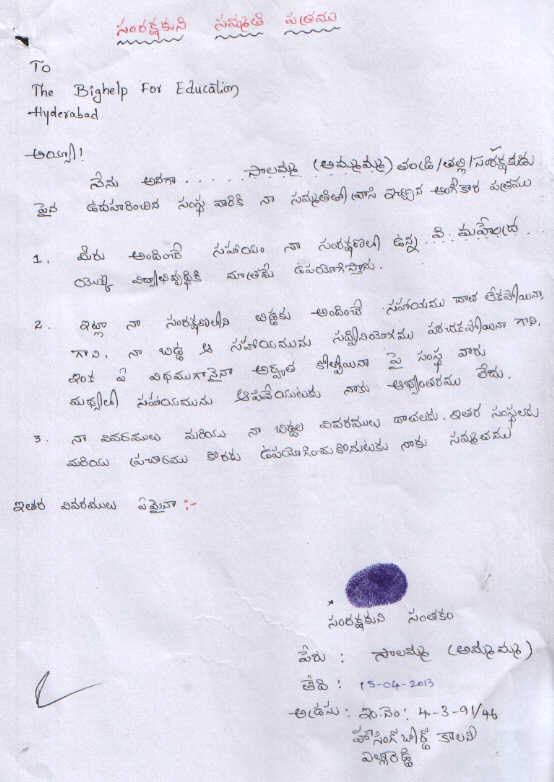 సంరక్షకుని సమ్మతి పత్రము
To
The Bighelp For Education
Hyderabad
అయ్యా!
నేను అనగా ..... సాలమ్మ (అమ్మమ్మ) తండ్రి/తల్లి/సంరక్షకుడు
పైన ఉదహరించిన సంస్థ వారికి నా సమ్మతితో వ్రాసి ఇచ్చిన అంగీకార పత్రము
1. మీరు అందించే సహాయం నా సంరక్షణలో ఉన్న .. వి. మహేంద్ర ..
యొక్క విద్యాభివృద్ధికి మాత్రమే ఉపయోగిస్తాను.
2. ఇట్లా నా సంరక్షణలోని బిడ్డకు అందించే సహాయము దాత లేకపోయినా,
గాని, నా బిడ్డ ఆ సహాయమును సద్వినియోగము పరచకపోయినా గాని,
ఇంక ఏ విధముగానైనా అర్హత కోల్పోయినా పై సంస్థ వారు
మధ్యలో సహాయమును ఆపివేయుటకు నాకు అభ్యంతరము లేదు.
3. నా వివరములు మరియు నా బిడ్డల వివరములు దాతలకు, ఇతర సంస్థలకు
మరియు ప్రచారము కొరకు ఉపయోగించుకొనుటకు నాకు సమ్మతము
ఇతర వివరములు ఏమైనా :-
సంరక్షకుని సంతకం
పేరు : సాలమ్మ (అమ్మమ్మ)
తేది : 15-04-2013
అడ్రసు : ఇం.నెం: 4-3-91/46
హౌసింగ్ బోర్డ్ కాలని
ఎల్లారెడ్డి